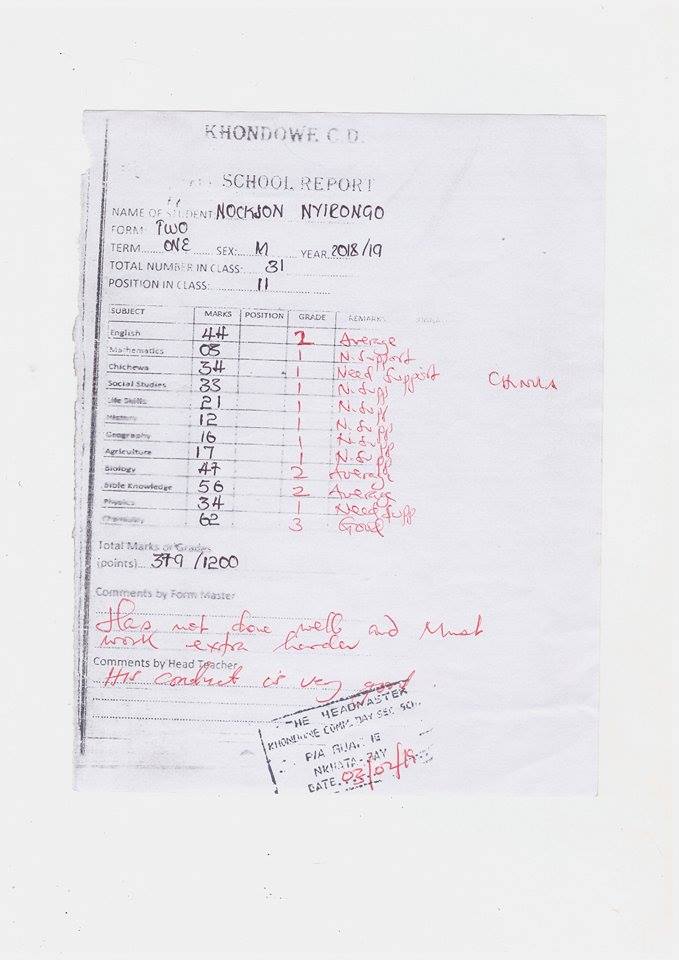 KHONDOWE C.D.
SCHOOL REPORT
NAME OF STUDENT NOCKSON NYIRONGO
FORM: TWO
TERM......ONE SEX:.....M YEAR 2018/19
TOTAL NUMBER IN CLASS: 31
POSITION IN CLASS: 11
SUBJECT MARKS POSITION GRADE REMARKS
English 44 2 Average
Mathematics 03 1 N. Support
Chichewa 34 1 Need Support
Social Studies 33 1 N. Supp
Life Skills 21 1 N. Supp
History 12 1 N. Supp
Geography 16 1 N. Supp
Agriculture 17 1 N. Supp
Biology 47 2 Average
Bible Knowledge 56 2 Average
Physics 34 1 Need Supp
Chemistry 62 3 Good
Total Marks or Grades
(points)... 379 /1200
Comments by Form Master
Has not done well and Must
work extra harder
Comments by Head Teacher
His conduct is very good
THE HEADMASTER
KHONDOWE COMM. DAY SEC. SCH.
NKHATA-BAY
DATE 03/02/19